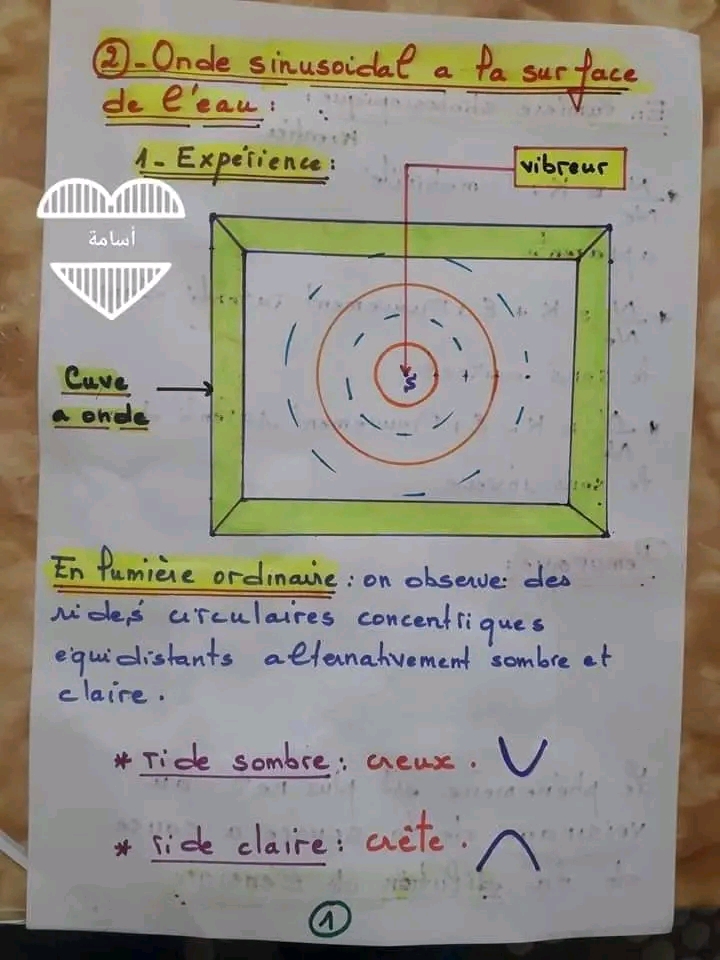 2)-Onde sinusoidal a la surface
de l'eau :
1- Expérience :
vibreur
أسامة
S
Cuve
a onde
En lumière ordinaire : on observe des
rides circulaires concentriques
equidistants alternativement sombre et
claire.
* ride sombre : creux.
* ride claire : crête.
1